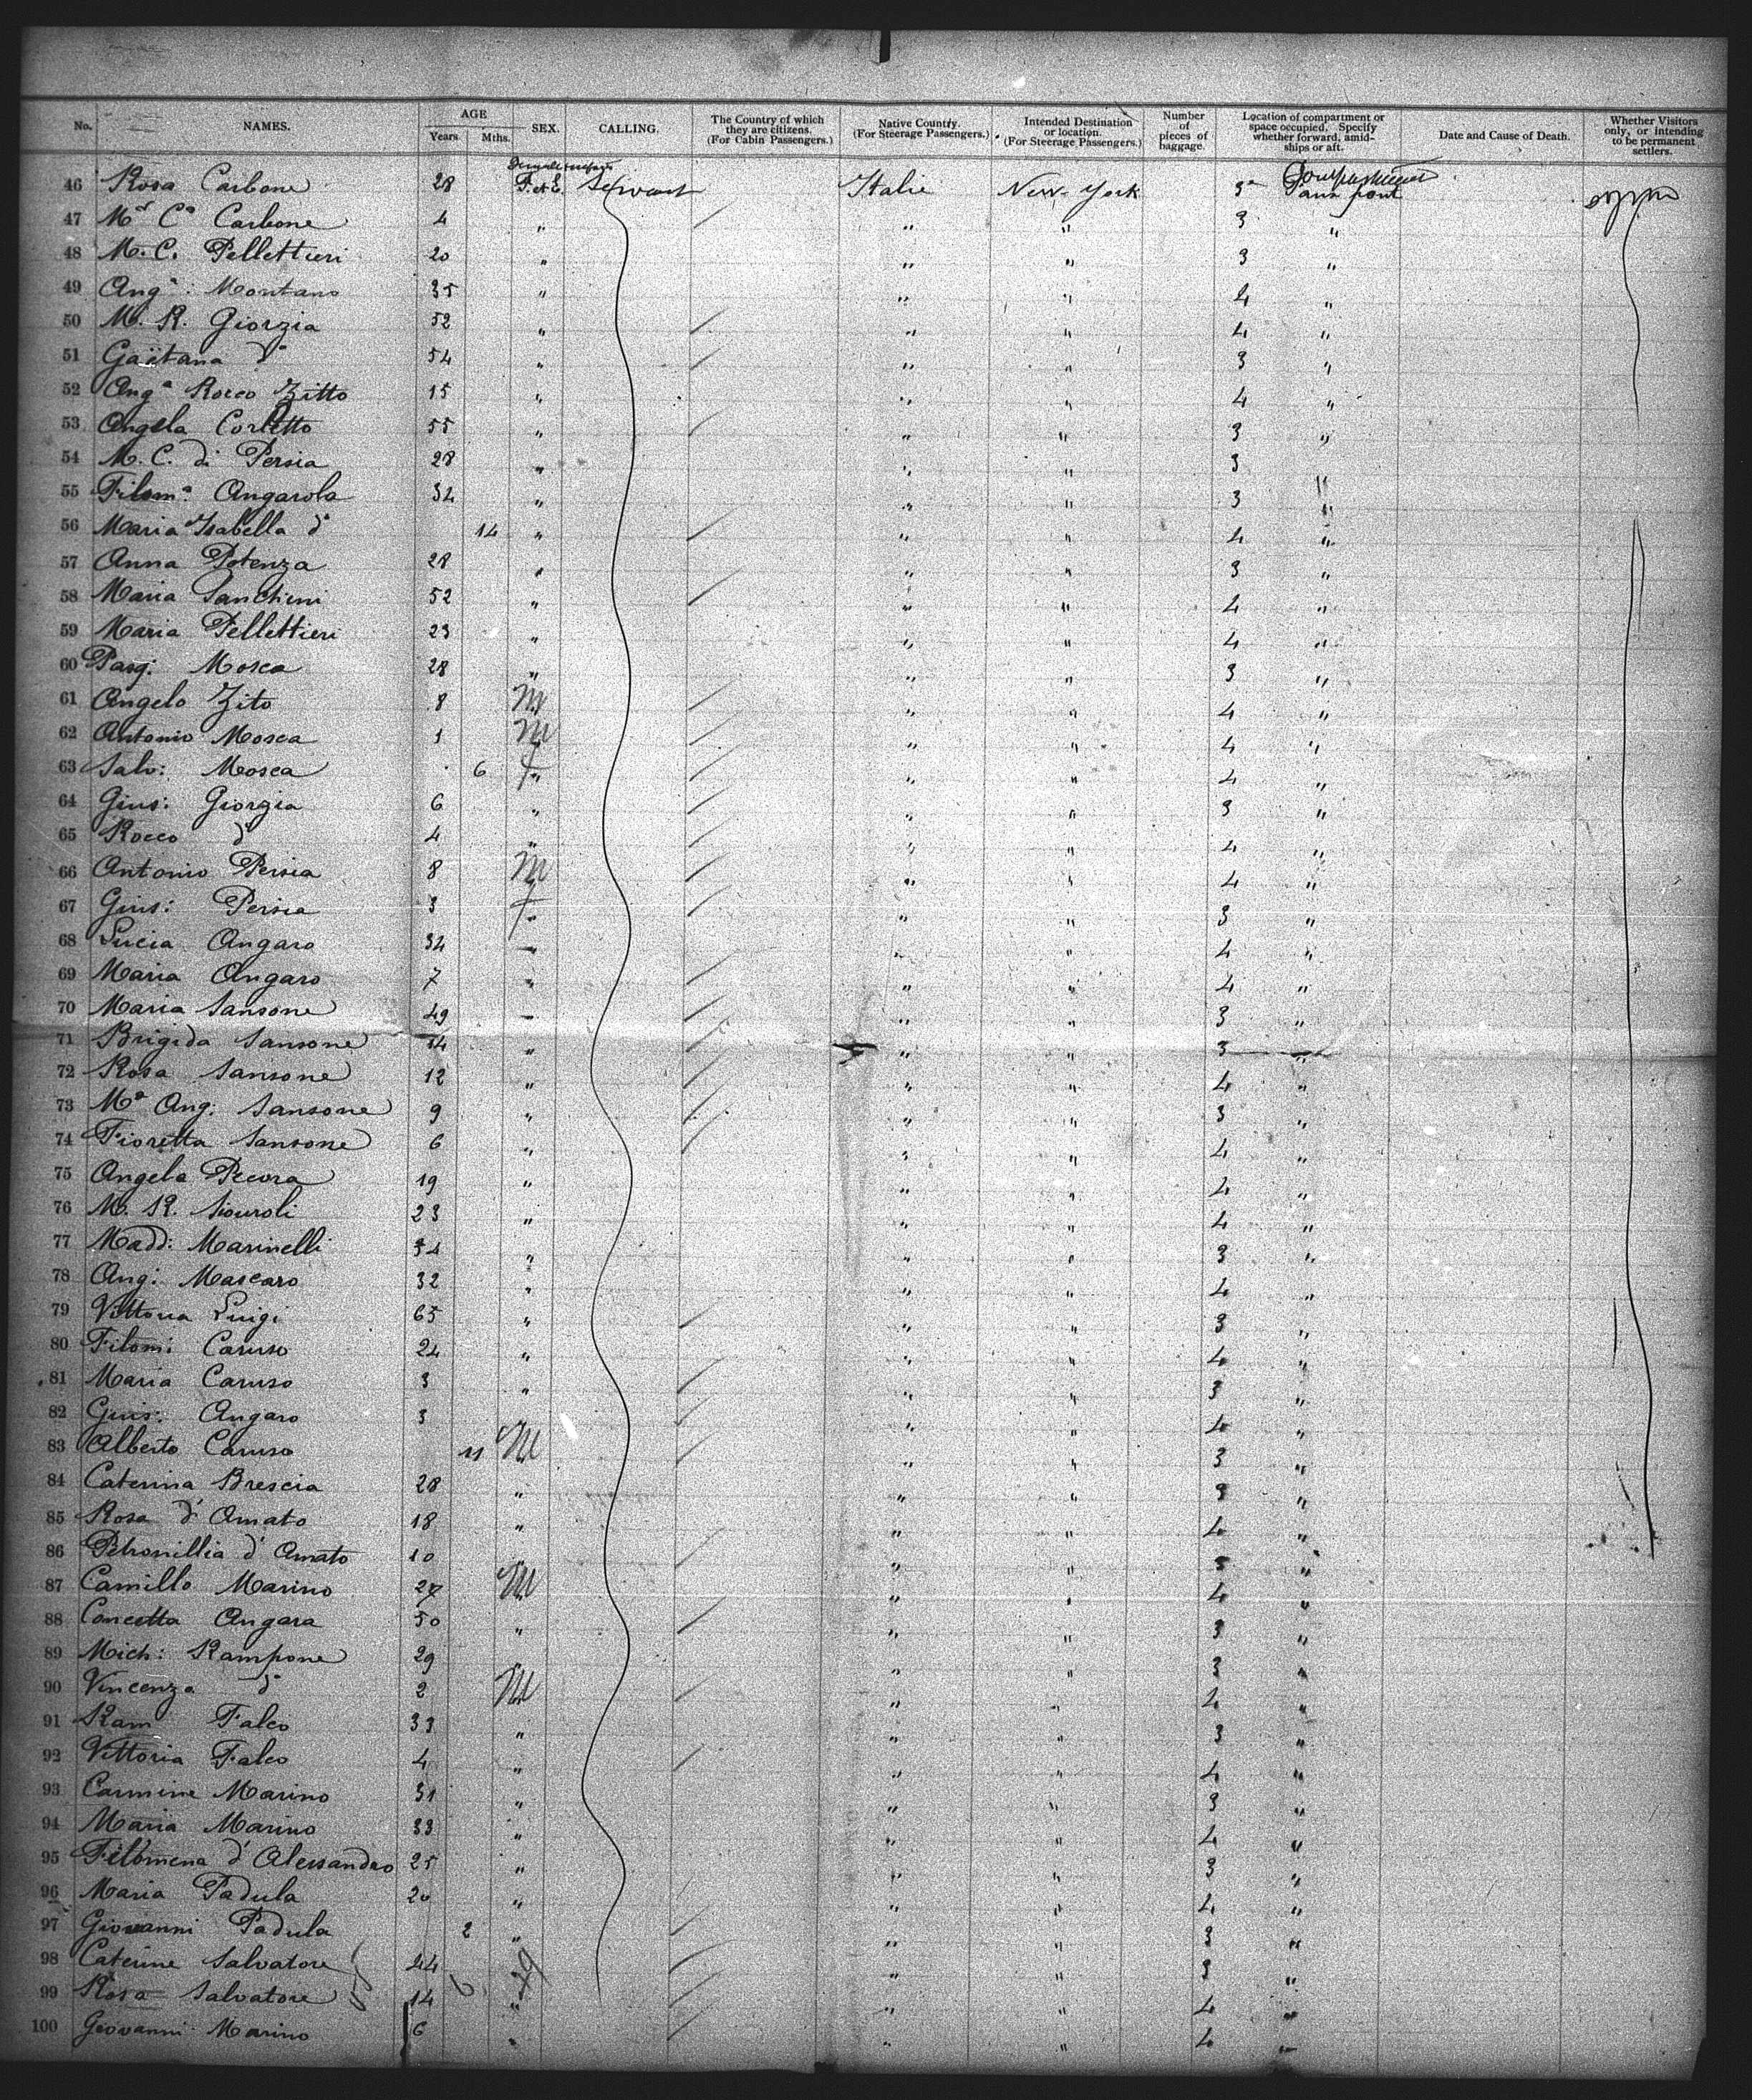 No. NAMES. AGE Years. Mths. SEX. CALLING. The Country of which they are citizens. (For Cabin Passengers.) Native Country. (For Steerage Passengers.) Intended Destination or location. (For Steerage Passengers.) Number of pieces of baggage. Location of compartment or space occupied. Specify whether forward, amidships or aft. Date and Cause of Death. Whether Visitors only, or intending to be permanent settlers.
46 Rosa Carbone 28 Servant Italie New-York 3
47 Mª Cª Carbone 4 " " " 3 "
48 M. C. Pellettieri 20 " " " 3 "
49 Angª: Montano 35 " " " 4 "
50 M. R. Giorgia 52 " " " 4 "
51 Gaëtana dº 54 " " " 3 "
52 Angª Rocco Zitto 15 " " " 4 "
53 Angela Corletto 55 " " " 3 "
54 M. C. di Persia 28 " " " 3
55 Filomª Angarola 34 " " " 3 "
56 Maria Isabella dº 14 " " " 4 "
57 Anna Potenza 28 " " " 3 "
58 Maria 52 " " " 4 "
59 Maria Pellettieri 23 " " " 4 "
60 Pasq: Mosca 28 " " " 3 "
61 Angelo Zito 8 M " " 4 "
62 Antonio Mosca 1 M " " 4 "
63 Salv: Mosca 6 F " " 4 "
64 Gius: Giorgia 6 " " " 3 "
65 Rocco dº 4 " " " 4 "
66 Antonio Persia 8 M " " 4 "
67 Gius: Persia 3 F " " 3 "
68 Lucia Angaro 34 " " " 4 "
69 Maria Angaro 7 " " " 4 "
70 Maria Sansone 49 " " " 3 "
71 Brigida Sansone 14 " " " 3 "
72 Rosa Sansone 12 " " " 4 "
73 Mª Ang: Sansone 9 " " " 3 "
74 Fioretta Sansone 6 " " " 4 "
75 Angela Pecora 19 " " " 4 "
76 M. R. 23 " " " 4 "
77 Madd: Marinelli 34 " " " 3 "
78 Ang: Mascaro 32 " " " 4 "
79 Vittoria Luigi 65 " " " 3 "
80 Filom: Caruso 24 " " " 4 "
81 Maria Caruso 3 " " " 3 "
82 Gius: Angaro 3 " " 4 "
83 Alberto Caruso 11 M " " 3 "
84 Caterina Brescia 28 " " " 3 "
85 Rosa d'Amato 18 " " " 4 "
86 Petronillia d'Amato 10 " " 3 "
87 Camillo Marino M " " 4 "
88 Concetta Angara 50 " " " 3 "
89 Mich: Rampone 29 " " 3 "
90 Vincenza dº 2 M " " 4 "
91 Ram Falco 33 " " " 3 "
92 Vittoria Falco 4 " " " 4 "
93 Carmine Marino 31 " " " 3 "
94 Maria Marino 33 " " " 4 "
95 Filomena d'Alessandro 25 " " " 3 "
96 Maria Padula 20 " " " 4 "
97 Giovanni Padula 2 " " " 3 "
98 Caterine Salvatore 44 " " 3 "
99 Rosa Salvatore 14 " " " 4 "
100 Giovanni Marino 6 " " " 4 "